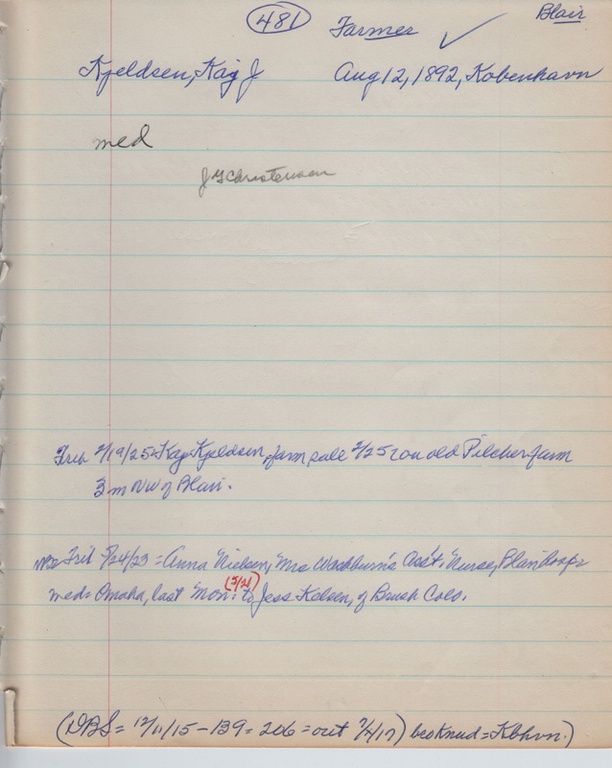 481 Farmer Blair
Kjeldsen, Kaj J Aug 12, 1892, Kobenhavn
med
J G Christensen
Trib 2/19/25 = Kay Kjeldsen, farm sale 2/25 on old Pilcher farm
3 m NW of Blair.
Trib 5/24/23 = Anna Nielsen, "Mrs Washburn's Ass't. Nurse, Blair
med = Omaha, last "Mon. (5/21) to Jess Kelsen, of Brush Colo.
(DBS = 12/11/15 - B9 = 206 = out 7/4/17) bes Knud = Kbhvn.)